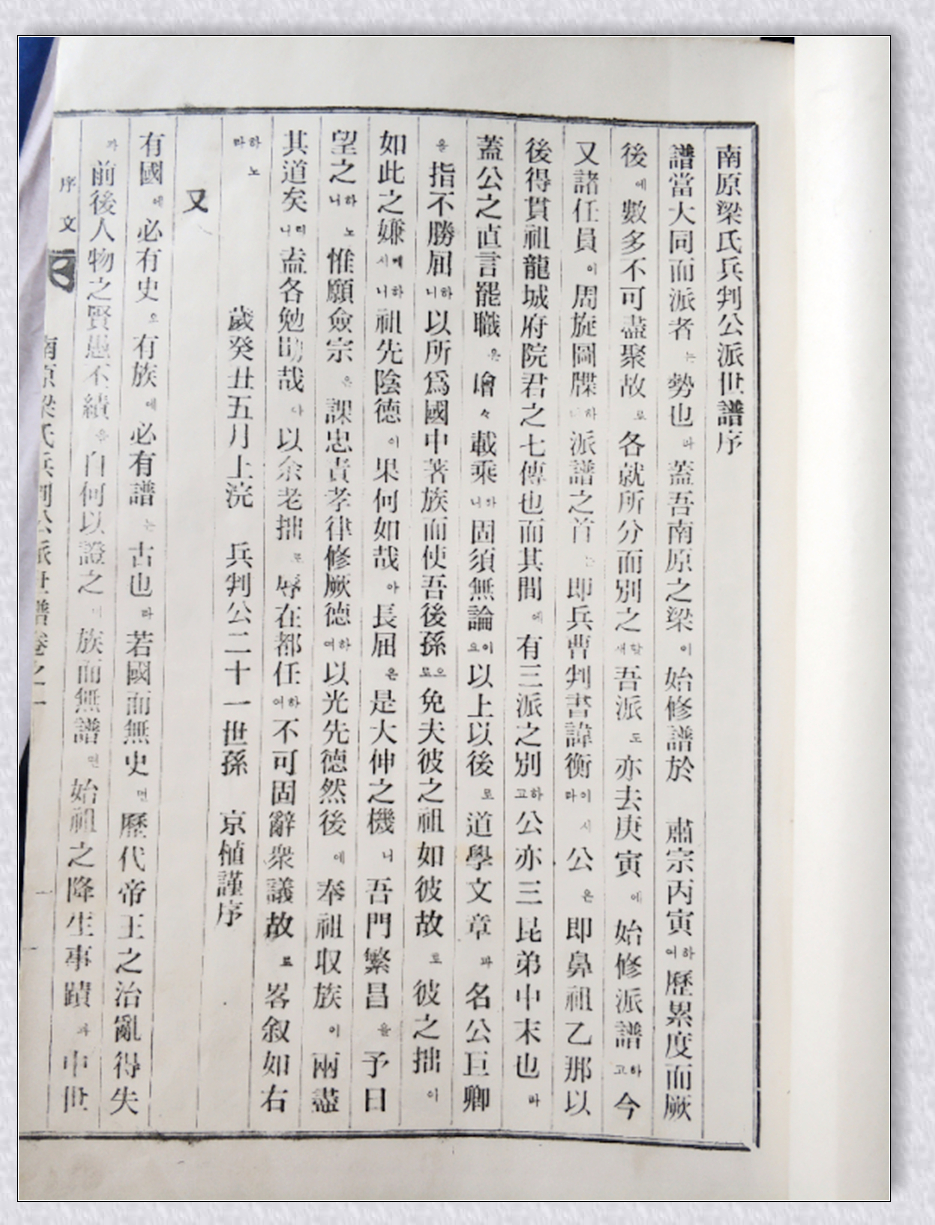 南原梁氏兵判公派世譜序
譜當大同而派者는勢也라蓋吾南原之梁이始修譜於 肅宗丙寅하여歷累度而厥
後에數多不可盡聚故로各就所分而別之할새吾派도亦去庚寅에始修派譜하고今
又諸任員이周旋圖牒하니派譜之首는即兵曹判書諱衡이라시公은即鼻祖乙那以
後得貫祖龍城府院君之七傳也而其間에有三派之別하고公亦三昆弟中末也라
蓋公之直言罷職을噲々載乘하니固須無論이요以上以後로道學文章과名公巨卿
을指不勝屈하니以所爲國中著族而使吾後孫으로免夫彼之祖如彼故로彼之拙이
如此之嫌에시하니祖先陰德이果何如哉아長屈은是大伸之機니吾門繁昌을予日
望之하노니惟願僉宗은課忠責孝律修厥德하여以光先德然後에奉祖収族이兩盡
其道矣리니盍各勉旃哉다以余老拙로辱在都任하여不可固辭衆議故로畧叙如右
하노라
歲癸丑五月上浣 兵判公二十一世孫 京植謹序
又
有國에必有史요有族에必有譜는古也라若國而無史면歷代帝王之治亂得失
과前後人物之賢愚不績을自何以證之며族而無譜면始祖之降生事蹟과中世
序文
南原梁氏兵判公派世譜卷之一